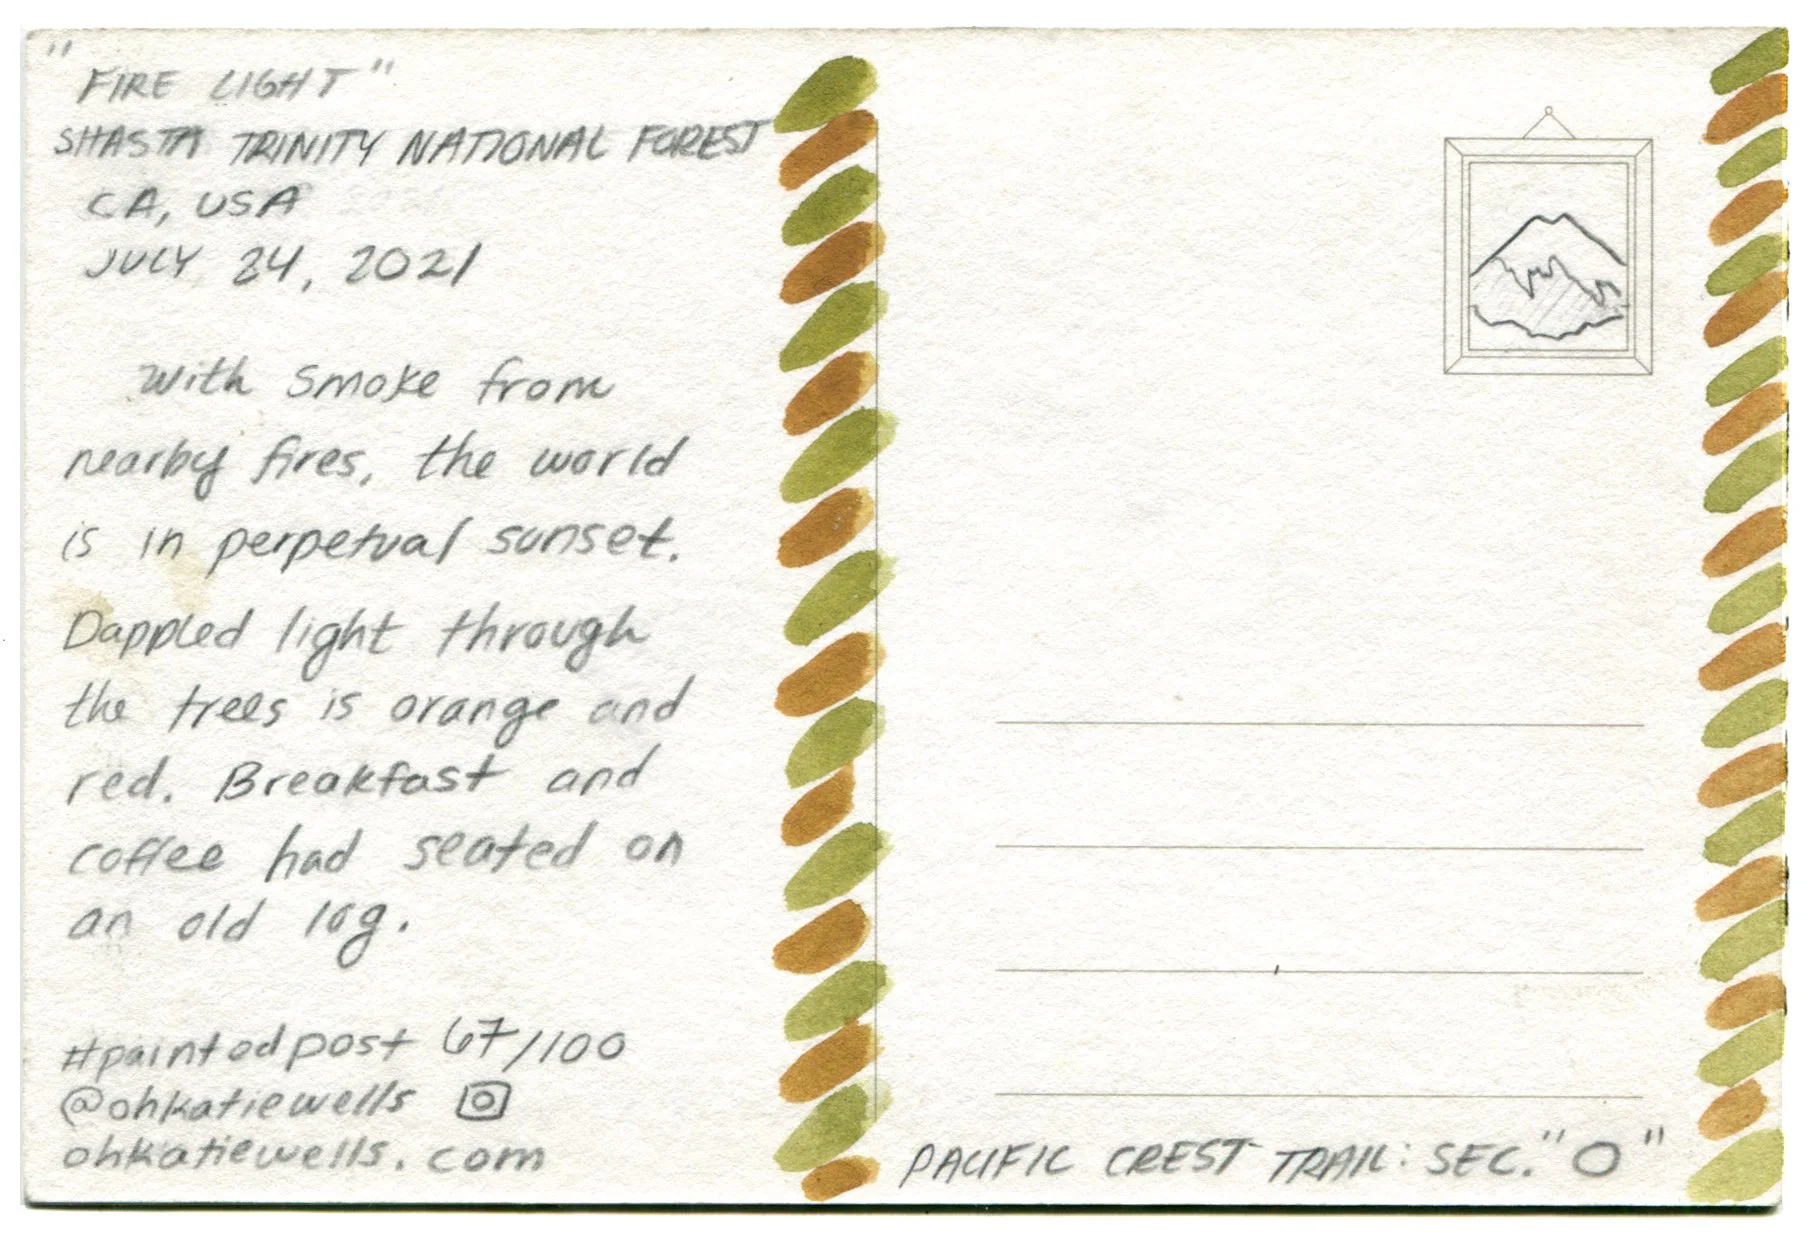 "FIRE LIGHT"
SHASTA TRINITY NATIONAL FOREST
CA, USA
JULY 24, 2021
With smoke from
nearby fires, the world
is in perpetual sunset.
Dappled light through
the trees is orange and
red. Breakfast and
coffee had seated on
an old log.
#paintedpost 67/100
@ohkatiewells
ohkatiewells.com
PACIFIC CREST TRAIL: SEC. "O"